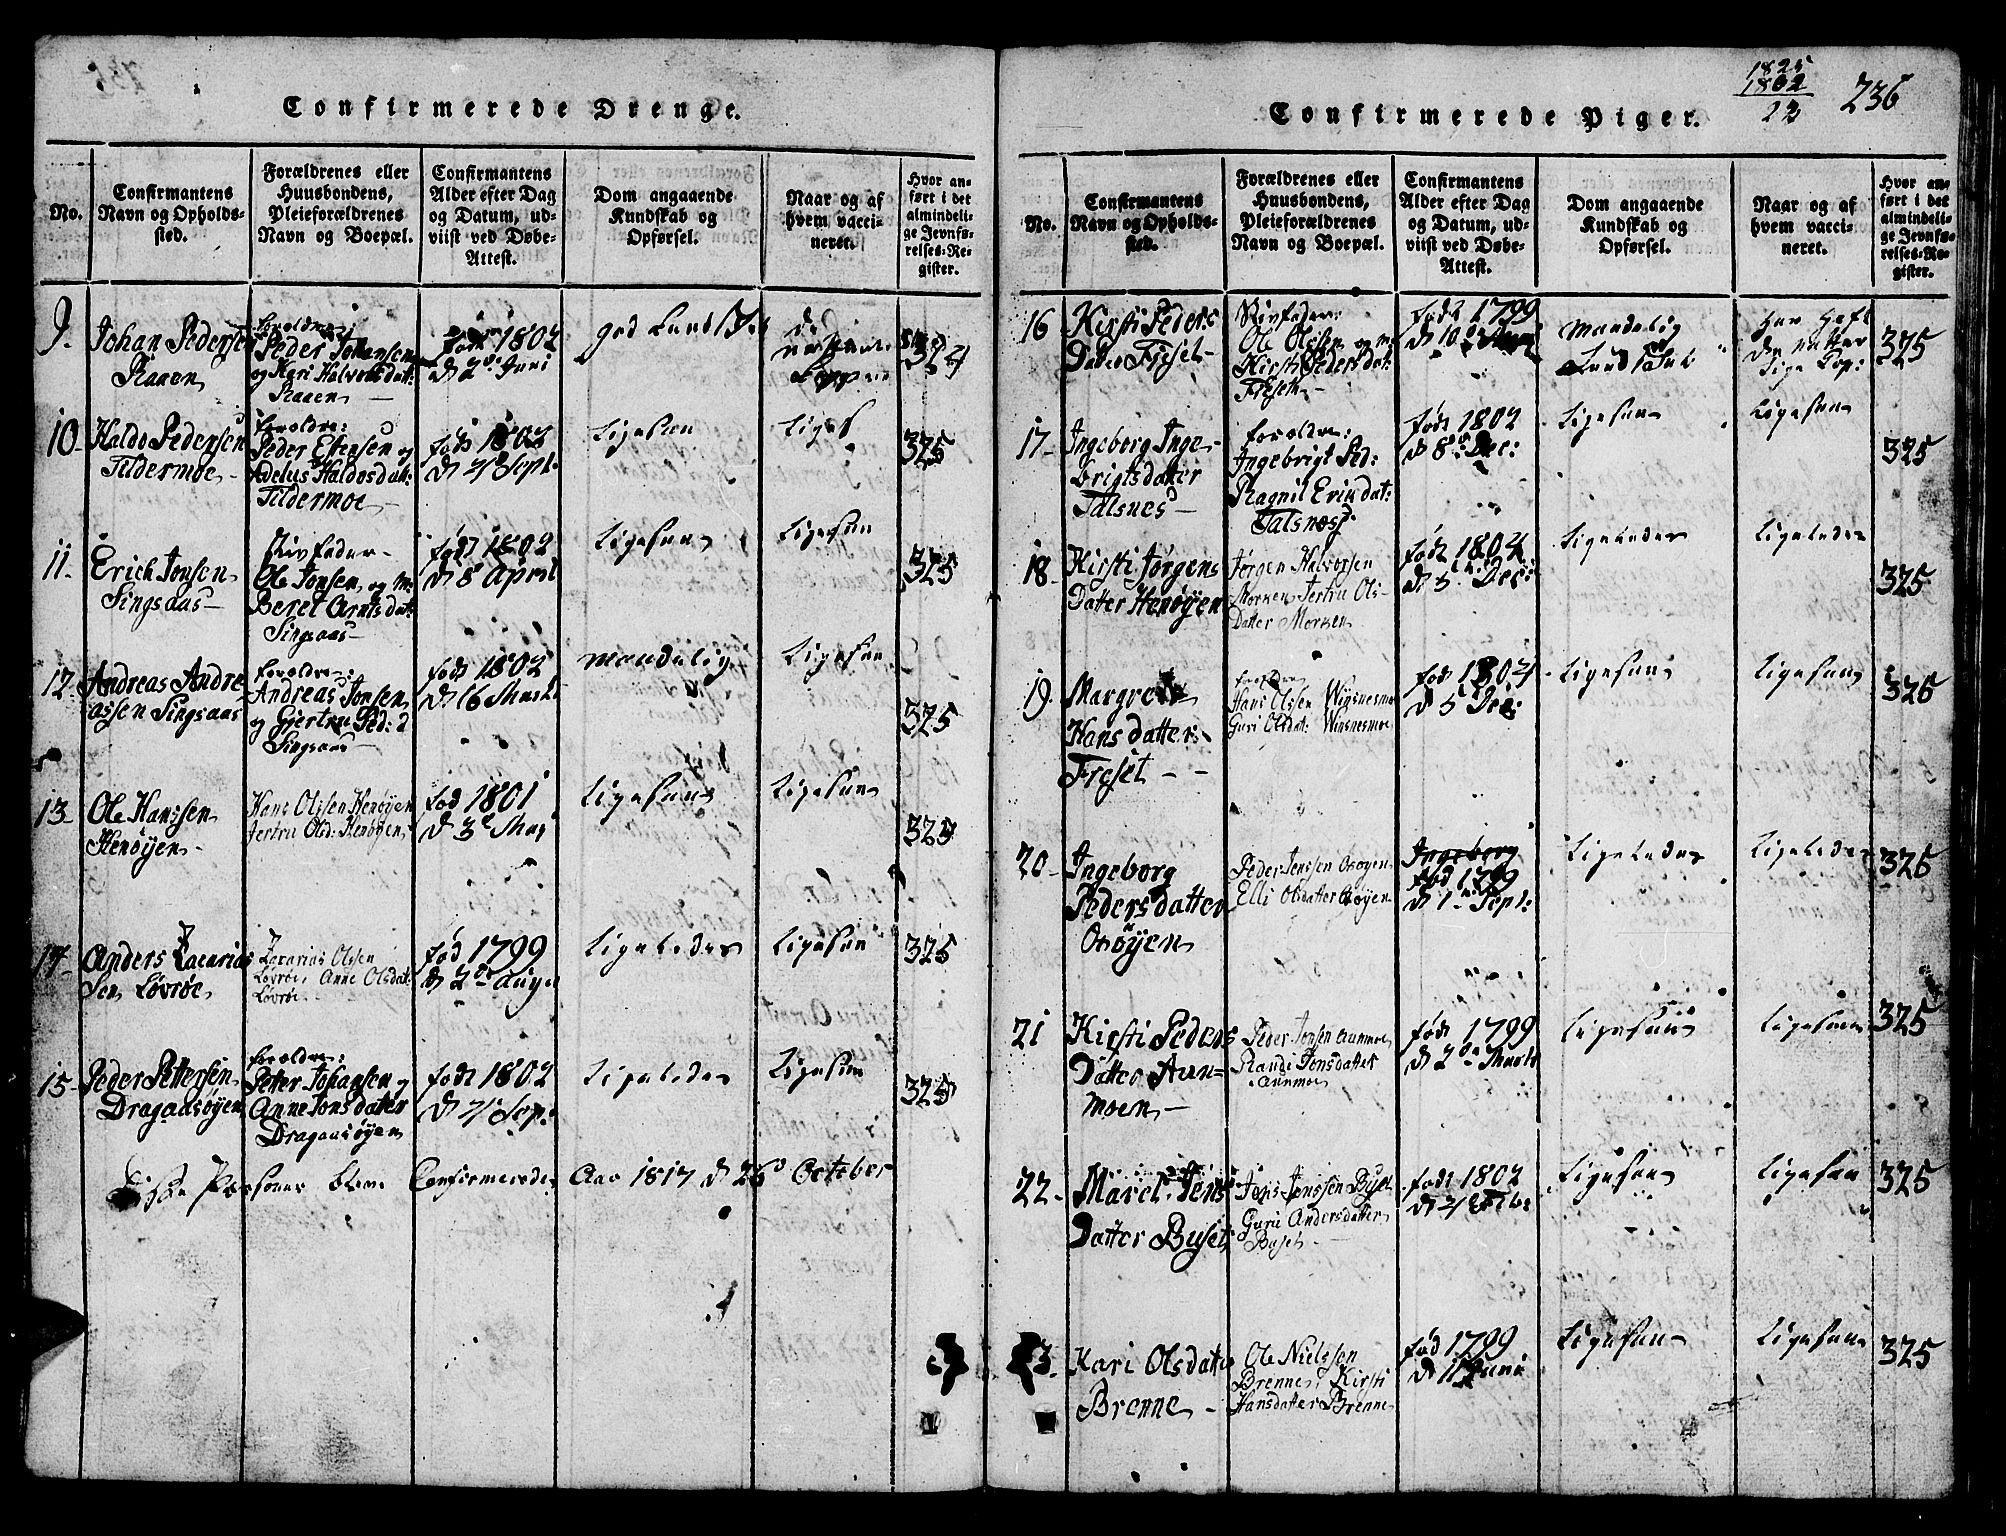 Confirmerede Drenge.
No.
Confirmantens
Navn og Opholds-
sted.
Forældrenes eller
Huusbondens,
Pleieforældrenes
Navn og Boepæl.
Confirmantens
Alder efter Dag
og Datum, ud-
viist ved Døbe-
Attest.
Dom angaaende
Kundskab og
Opførsel.
Naar og af
hvem vacci-
neret.
Hvor an-
ført i det
almindeli-
ge Jevnfø-
relses-Re-
gister.
9.
Johan Pedersen
Raaen
foroldre:
Peder Johansen
og Kari Halvorsdatt:
Raaen
født 1802
d 2de Juni
god
324
10.
Haldo Pedersen
Tildermoe
foroldre:
Peder Estensen og
Adelus Haldosdatt:
Tildermoe
født 1802
d 21 Sept:
Ligesaa
325
11.
Erich Jonsen
Singsaas
Stivfader
Ole Jonsen, og M:
Beret Arntsdat:
Singsaas
født 1802
d 8 April
Ligesaa
Ligesaa
325
12.
Andreas Andre-
assen Singsaas
foroldre:
Andreas Jonsen
og Gjertru Ped: d
Singsaas
født 1802
d 16 Marti
maadelig
Ligesaa
325
13.
Ole Hanssen
Henøyen
Hans Olssen Henøyen
Jertru Olsd: Henøyen
fød 1801
d 3de Maj
Ligesaa
Ligesaa
325
14.
Anders Zacarias
Sen Løvrøe
Zacarias Olssen
Løvrøe, Anne Olsdat:
Løvrøe
fød 1799
d 2de Augu
Ligeledes
Ligesaa
325
15.
Peder Pettersen
Dragaasøyen
foroldre:
Peter Johansen og
Anne Jonsdatter
Dragaasøyen
født 1802
d 21 Sep:
Ligeledes
Ligesaa
325
Disse Personer blev Confirmerede Aar 1817 d 26 October
Confirmerede Piger.
1825
1802
23
236
No.
Confirmantens
Navn og Opholds-
sted.
Forældrenes eller
Huusbondens,
Pleieforældrenes
Navn og Boepæl.
Confirmantens
Alder efter Dag
og Datum, ud-
viist ved Døbe-
Attest.
Dom angaaende
Kundskab og
Opførsel.
Naar og af
hvem vacci-
neret.
Hvor an-
ført i det
almindeli-
ge Jevnfø-
relses-Re-
gister.
16
Kirsti Peders
Datter Freset
Stivfader:
Ole Olssen og M:
Kirsti Pedersdat:
Freset
født 1799
d 10
maadelig
Kundskab
Har Haft
325
17.
Ingeborg Inge-
brigtsdatter
Talsnes
foroldre:
Ingebrigt Ped:
Ragnil Erichsdat:
Talsnes
født 1802
d 8 Dec:
Ligesaa
Ligesaa
325
18.
Kirsti Jørgens
Datter Henøyen
Jørgen Halvorsen
Morken Jertru Ols-
Datter Morken
født 1802
d 5 Dec:
Ligeledes
Ligeledes
325
19.
Margrete
Hansdatter
Freset
foroldre
Hans Olssen Winsnesmo
Guri Olsdat: Winsnesmoe
født 1802
d 5 Dec:
Ligesaa
Ligesaa
325
20.
Ingeborg
Pedersdatter
Osøyen
Peder Jenssen Osøyen
Elli Olsdatter Osøyen
Ingeborg
fød 1799
d 1 Sept:
Ligeledes
Ligeledes
325
21
Kirsti Peders
Datter Aun-
moen
Peder Jonsen Aunmoe
Randi Jonsdatter
Aunmoe
født 1799
d 2de Marti
Ligesaa
Ligesaa
325
22.
Maret Jens
Datter Buset
Jens Jenssen Buset
Guru Andersdatter
Buset
født 1802
Ligesaa
Ligesaa
325
3.
Kari Olsdatter
Brenne
Ole Nielssen
Brenne, Kirsti
Hansdatter Brenne
fød 1799
d 11 Juni
Ligesaa
Ligesaa
325